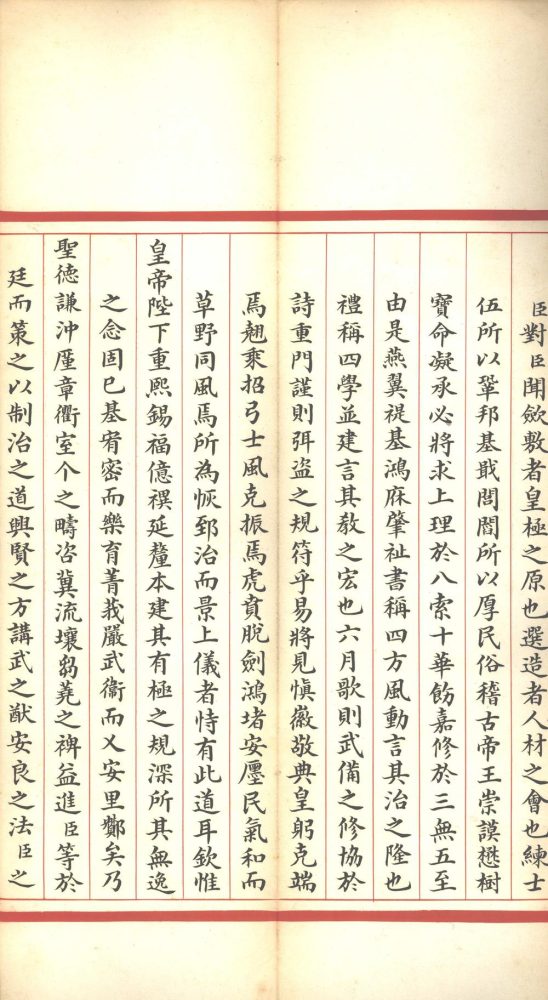 臣對臣聞歛敷者皇極之原也選造者人材之會也練士
伍所以鞏邦基戢閭閻所以厚民俗稽古帝王崇謨懋樹
寶命凝承必將求上理於八索十華飭嘉修於三無五至
由是燕翼禔基鴻庥肇祉書稱四方風動言其治之隆也
禮稱四學並建言其教之宏也六月歌則武備之修協於
詩重門謹則弭盜之規符乎易將見慎徽敬典皇躬克端
焉翹乘招弓士風克振焉虎賁脫劍鴻堵安廛民氣和而
草野同風焉所為恢郅治而景上儀者恃有此道耳欽惟
皇帝陛下重熙錫福億禩延釐本建其有極之規深所其無逸
之念固已基宥密而樂育菁莪嚴武衞而乂安里酇矣乃
聖德謙沖厪章衢室个之疇咨冀流壤芻蕘之裨益進臣等於
廷而策之以制治之道興賢之方講武之猷安良之法臣之